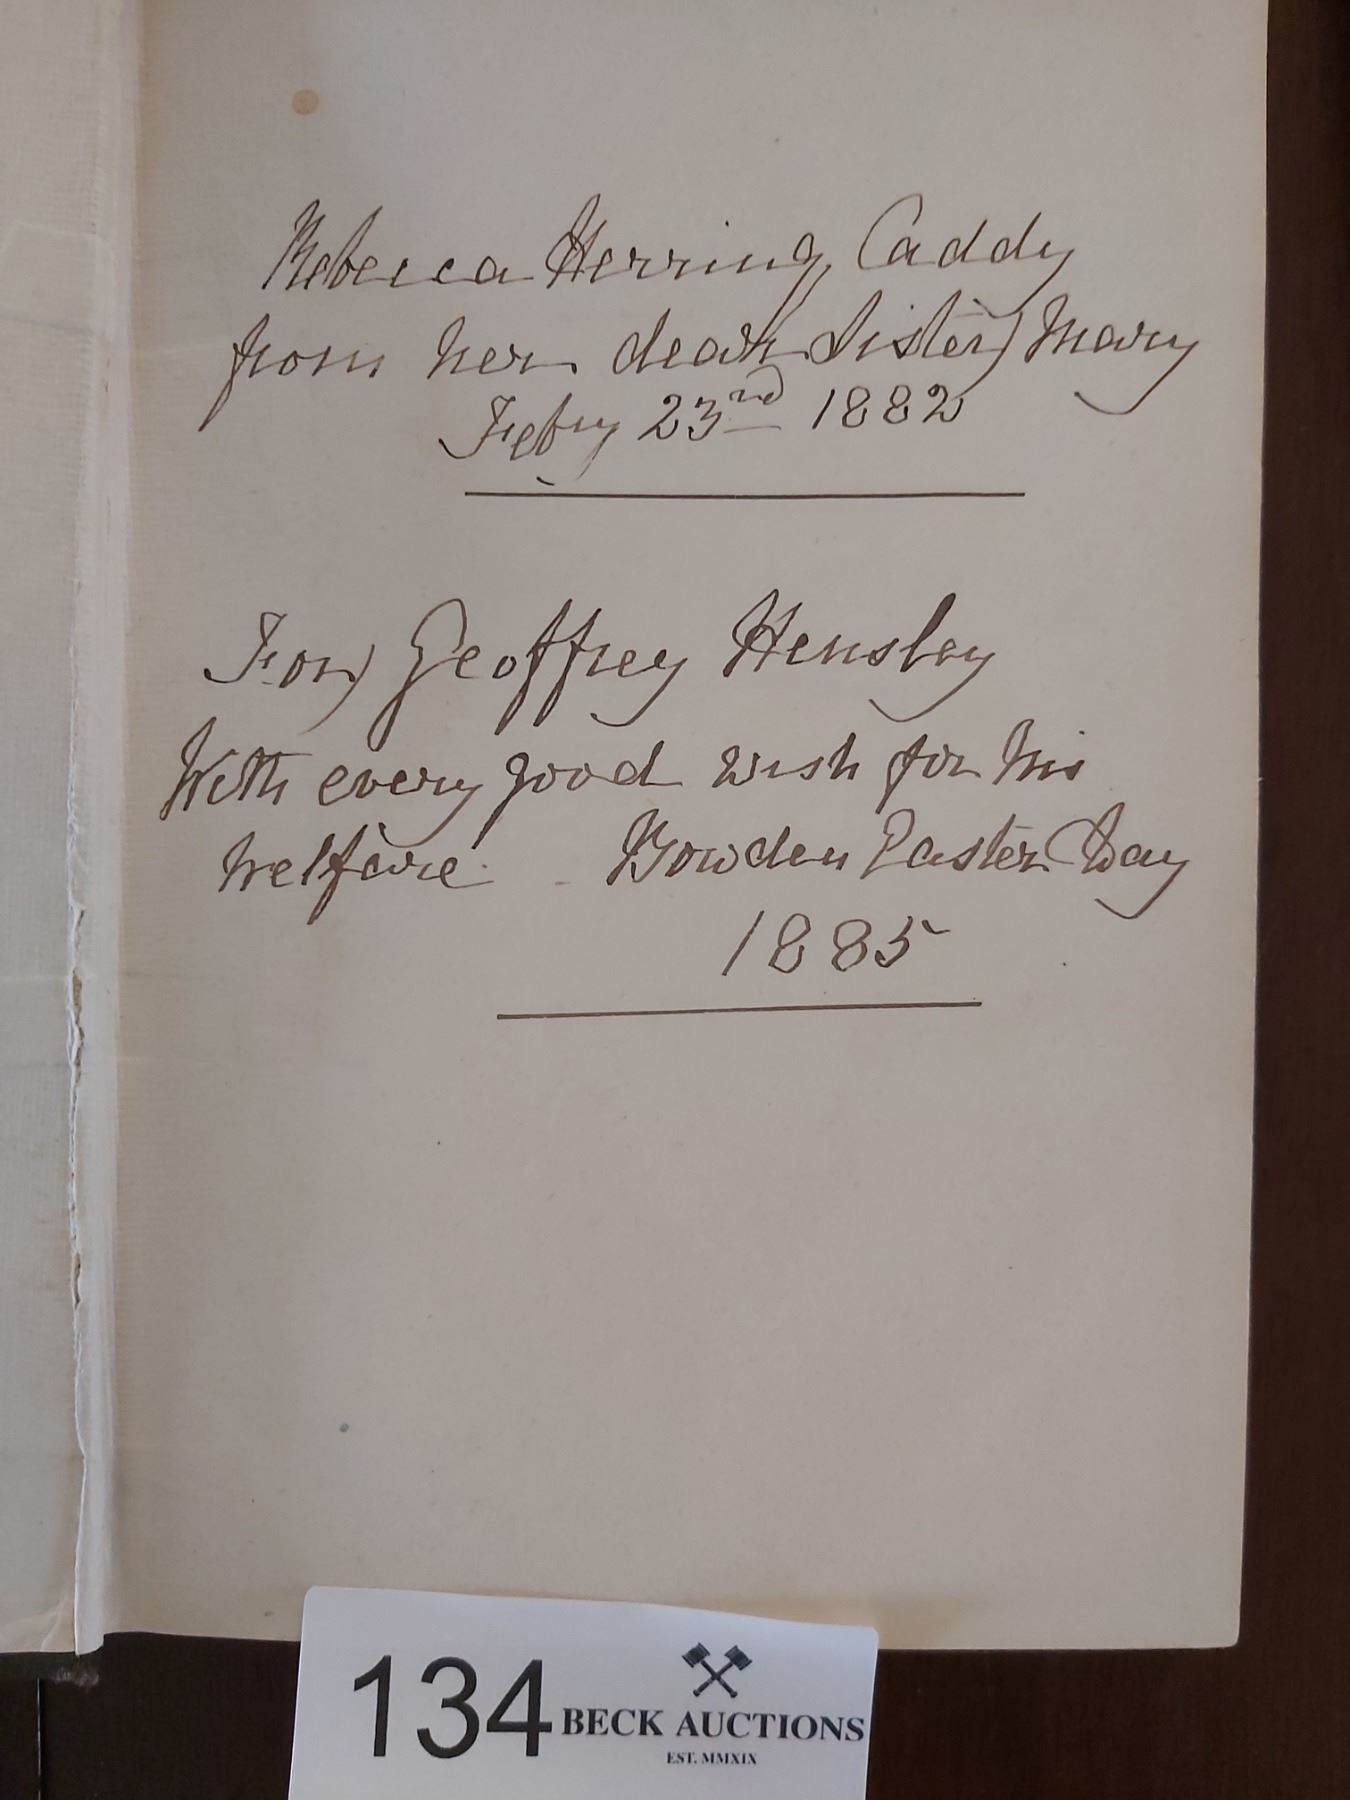 Rebecca Herring Caddy
from her dear Sister Mary
Feby 23rd 1882
For Geoffrey Hensley
With every good wish for his
welfare. Bowden Easter Day
1885
134
BECK AUCTIONS
EST. MMXIX